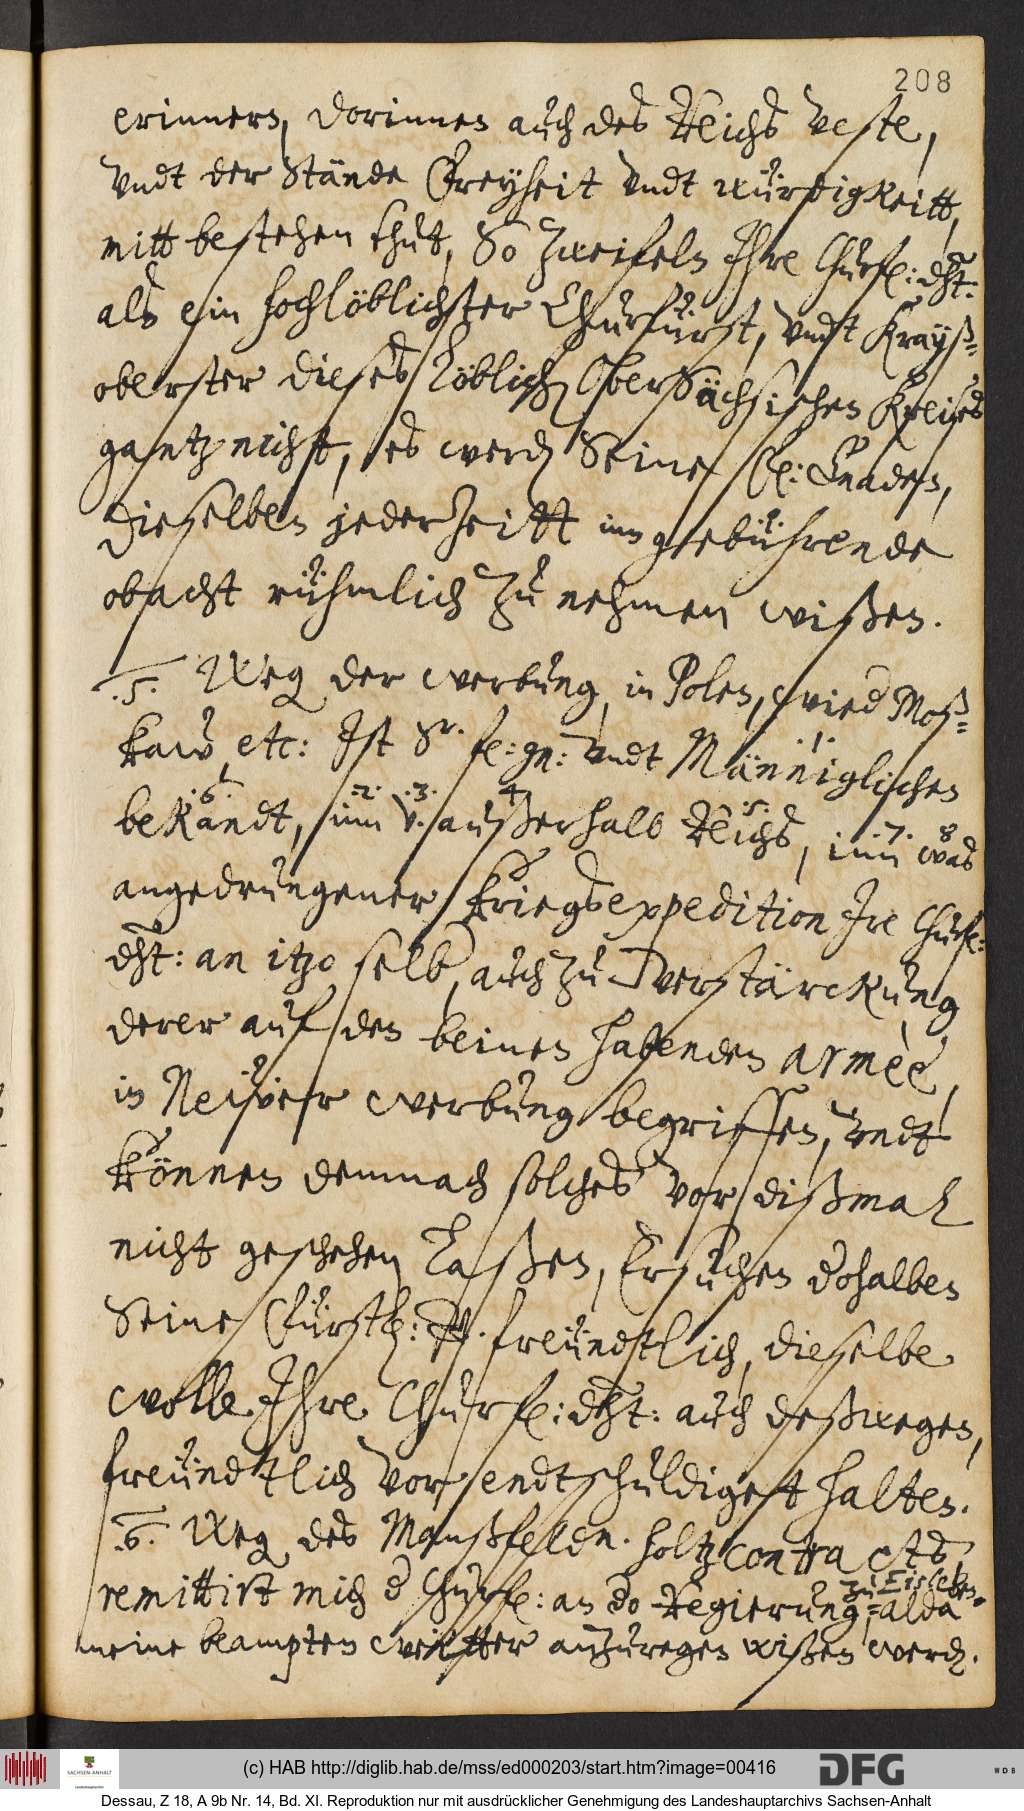 208
erinnern, dorinnen auch des Reichs veste,
undt der Stände Freyheit undt würdigkeitt,
mitt bestehen thut, So zweifeln Ihre Churfl: dht:
als ein hochlöblichster Churfürst, undt Kräyß=
oberster dieses löblich OberSächsischen Kreises
gantz nicht, es werd Seine fl: Gnaden,
dieselben jederzeitt inn gebührende
obacht rühmlich zu nehmen wißen.
.5. Weg der werbung in Polen, wied Moß=
kaw etc: Ist Sr. fl: gn: undt Männiglichen .1.
bekandt, .6. inn .2. v. .3. außerhalb 4 Reichs .5., inn .7. was 8
angedrungener Kriegsexpedition Ire Churfl:
dht: an itzo selb, auch zu verstärckung
derer auf den beinen habenden armèe,
in Neüer werbung begriffen, undt
können demnach solches vor dißmal
nicht geschehen laßen, Ersuchen dohalben
Seine Fürstl: G. freündtlich, dieselbe
wolle Ihre Churfl: dht: auch deßwegen,
freündtlich vor endtschuldigett halten.
.6. Weg des Manßfeldn. holtzcontracts,
remittirt mich d Churfl: an do Regierung, zu Eisleben. =alda
meine beampten weitter anzuregen wißen werd.
(c) HAB http://diglib.hab.de/mss/ed000203/start.htm?image=00416
SACHSEN-ANHALT
DFG
WDB
Dessau, Z 18, A 9b Nr. 14, Bd. XI. Reproduktion nur mit ausdrücklicher Genehmigung des Landeshauptarchivs Sachsen-Anhalt